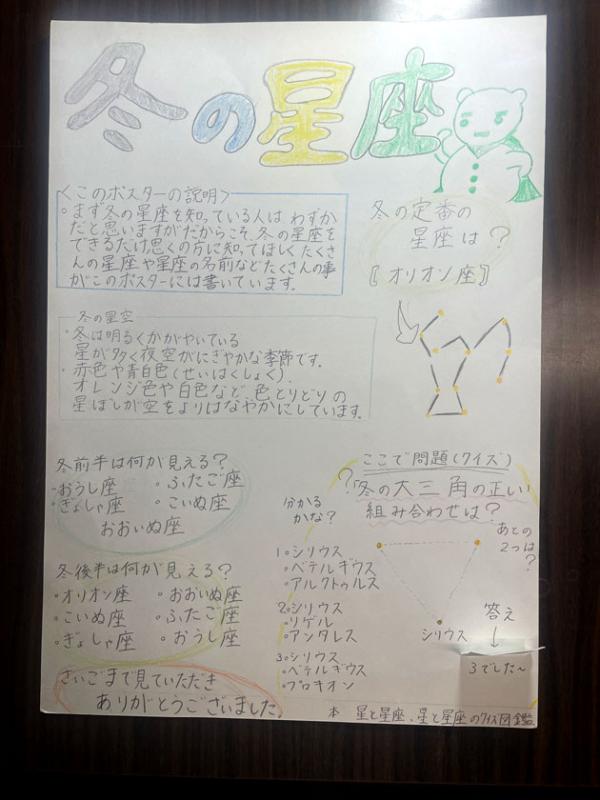 冬の星座
<このポスターの説明>
・まず冬の星座を知っている人は わずか
だと思いますがだからこそ、冬の星座を
できるだけ思くの方に知ってほしくたくさ
んの星座や星座の名前などたくさんの事
がこのポスターには書いています。
冬の定番の
星座は?
〖オリオン座〗
冬の星空
・冬は明るくかがやいている
星が多く夜空がにぎやかな季節です。
・赤色や青白色(せいはくしょく)
オレンジ色や白色など、色とりどりの
星ぼしが空をよりはなやかにしています。
冬前半は何が見える?
・おうし座 ・ふたご座
・ぎょしゃ座 ・こいぬ座
おおいぬ座
冬後半は何が見える?
・オリオン座 ・おおいぬ座
・こいぬ座 ・ふたご座
・ぎょしゃ座 ・おうし座
さいごまで見ていただき
ありがとうございました。
ここで問題(クイズ)
?「冬の大三角の正しい
組み合わせは?
分かる
かな?
あとの
2つは
?
1.シリウス
・ベテルギウス
・アルクトゥルス
2.シリウス
・リゲル
・アンタレス
3.シリウス
・ベテルギウス
・プロキオン
シリウス
答え
↓
3でした~
本 星と星座、星と星座のクイズ図鑑